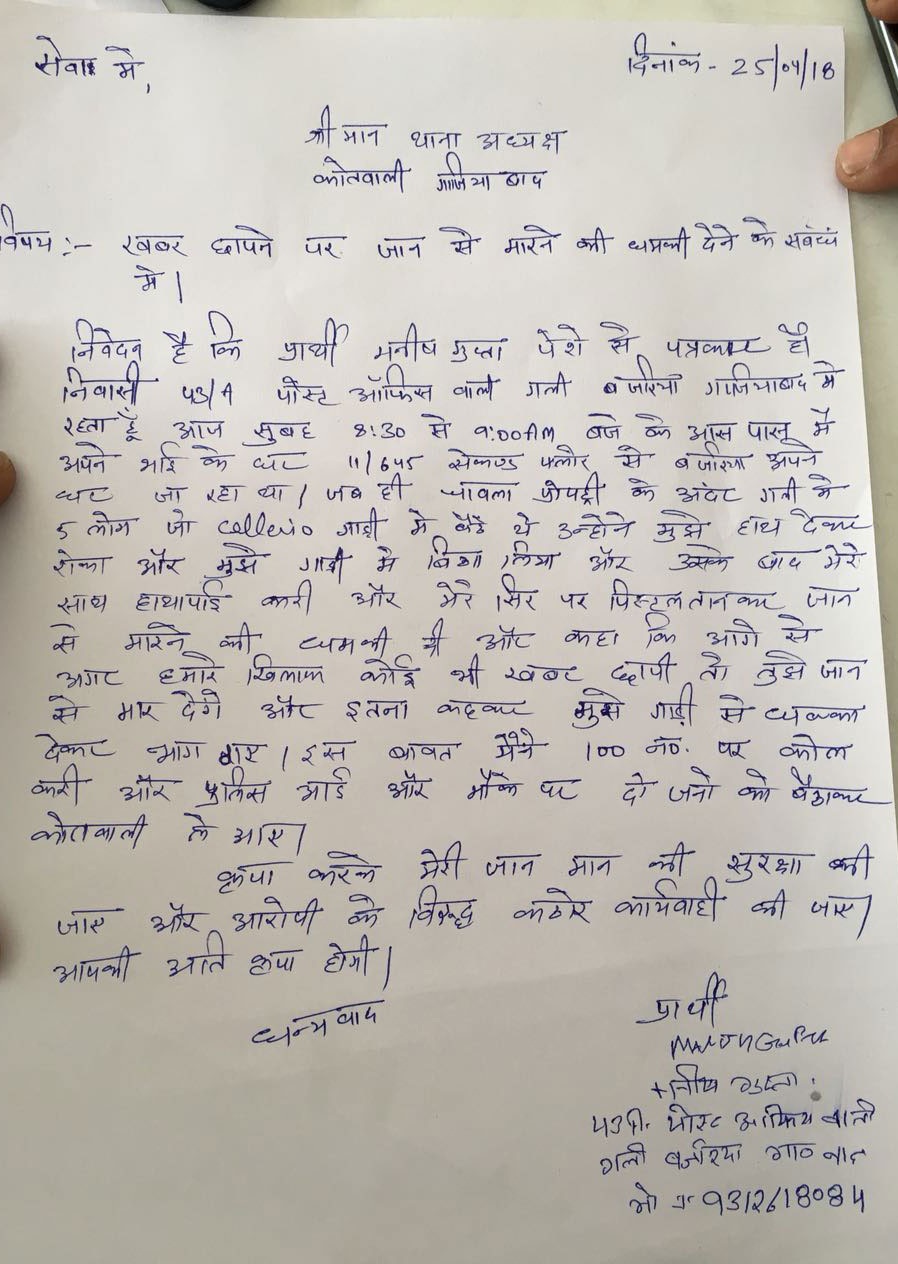 सेवा मे,
दिनांक - 25/04/18
श्री मान थाना अध्यक्ष
कोतवाली गाजियाबाद
विषय :- खबर छापने पर जान से मारने की धमकी देने के संबंध
मे।
निवेदन है कि प्रार्थी मनीष गुप्ता पेशे से पत्रकार है।
निवासी 43/A पोस्ट ऑफिस वाली गली बजरिया गाजियाबाद मे
रहता हूँ आज सुबह 8:30 से 9:00AM बजे के आस पास मै
अपने भाई के घर 11/645 सेकण्ड फ्लोर से बजरिया अपने
घर जा रहा था। जब ही चावला प्रोपर्ट्री के अंदर गली मे
5 लोग जो Cellerio गाडी मे बैठे थे उन्होने मुझे हाथ देकर
रोका और मुझे गाडी मे बिठा लिया और उसके बाद मेरे
साथ हाथापाई करी और मेरे सिर पर पिस्टल तानकर जान
से मारने की धमकी दी और कहा कि आगे से
अगर हमारे खिलाफ कोई भी खबर छापी तो तुझे जान
से मार देगे और इतना कहकर मुझे गाड़ी से धक्का
देकर भाग गए। इस बाबत मैने 100 नं. पर कोल
करी और पुलिस आई और मौके पर दो जनो को बैठाकर
कोतवाली ले आए।
कृपा करके मेरी जान मान की सुरक्षा की
जाए और आरोपी के विरूद्ध कठोर कार्यवाही की जाए।
आपकी अति कृपा होगी।
धन्यवाद
प्रार्थी
मनीष गुप्ता
43A. पोस्ट आफिस वाली
गली बजरिया गा० बाद
मो 9312618084